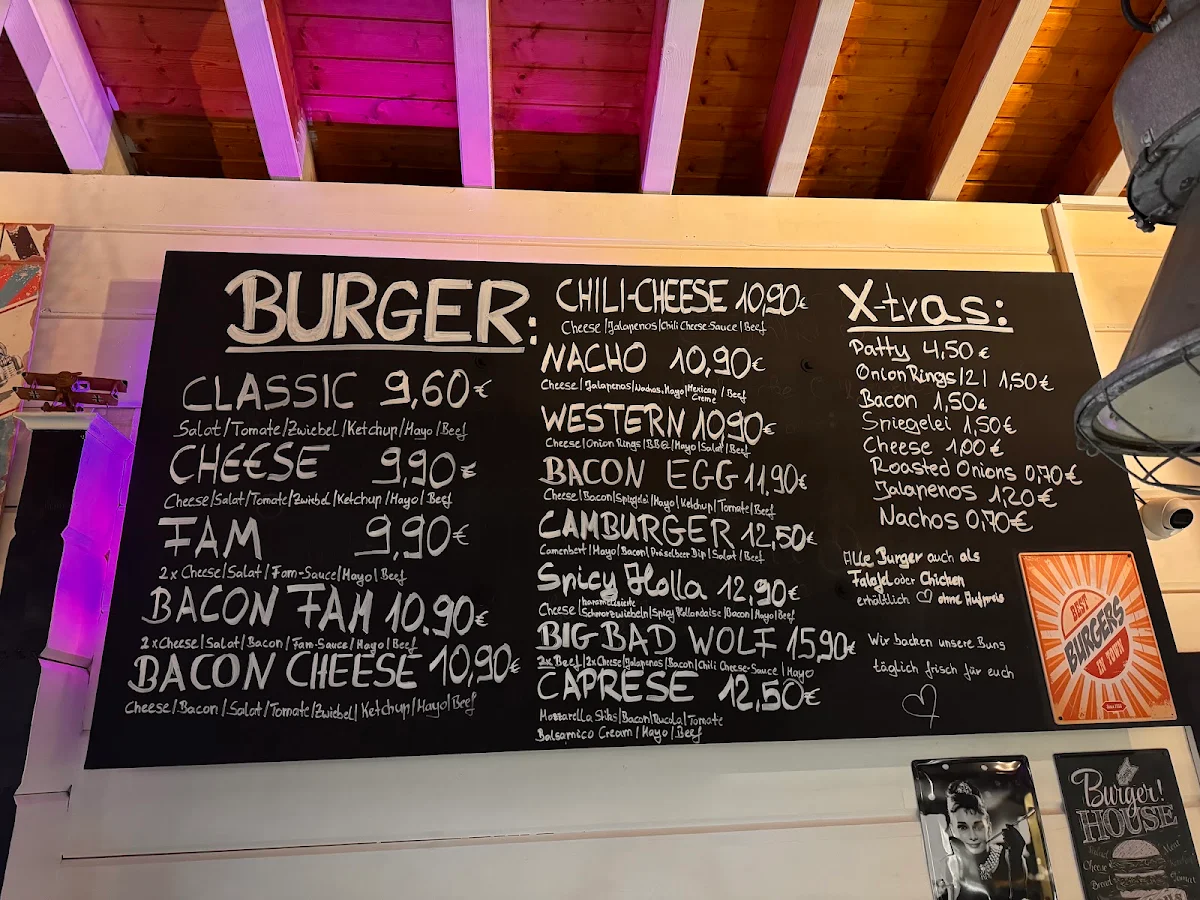 BURGER:
CLASSIC 9,60€
Salat/Tomate/Zwiebel/Ketchup/Mayo/Beef
CHEESE 9,90€
Cheese/Salat/Tomate/Zwiebel/Ketchup/Mayo/Beef
FAM 9,90€
2x Cheese/Salat/Fam-Sauce/Mayo/Beef
BACON FAM 10,90€
2xCheese/Salat/Bacon/Fam-Sauce/Mayo/Beef
BACON CHEESE 10,90€
Cheese/Bacon/Salat/Tomate/Zwiebel/Ketchup/Mayo/Beef
CHILI-CHEESE 10,90€
Cheese/Jalapenos/Chili Cheese-Sauce/Beef
NACHO 10,90€
Cheese/Jalapenos/Nachos/Mayo/Mexican Creme/Beef
WESTERN 10,90€
Cheese/Onion Rings/BBQ/Mayo/Salat/Beef
BACON EGG 11,90€
Cheese/Bacon/Spiegelei/Mayo/Ketchup/Tomate/Beef
CAMBURGER 12,50€
Camenbert/Mayo/Bacon/Preiselbeer Dip/Salat/Beef
Spicy Holla 12,90€
Cheese/karamellisierte Schmorzwiebeln/Spicy Hollandaise/Bacon/Mayo/Beef
BIG BAD WOLF 15,90€
2x Beef/2xCheese/Jalapenos/Bacon/Chili Cheese-Sauce/Mayo
CAPRESE 12,50€
Mozzarella Stiks/Bacon/Rucola/Tomate
Balsamico Cream/Mayo/Beef
X-tras:
Patty 4,50€
Onion Rings/2 1,50€
Bacon 1,50€
Spiegelei 1,50€
Cheese 1,00€
Roasted Onions 0,70€
Jalapenos 1,20€
Nachos 0,70€
Alle Burger auch als
Falafel oder Chicken
erhältlich ♡ ohne Aufpreis
Wir backen unsere Buns
täglich frisch für euch
BEST
BURGERS
IN TOWN
Burger!
HOUSE
Cheese
Bread